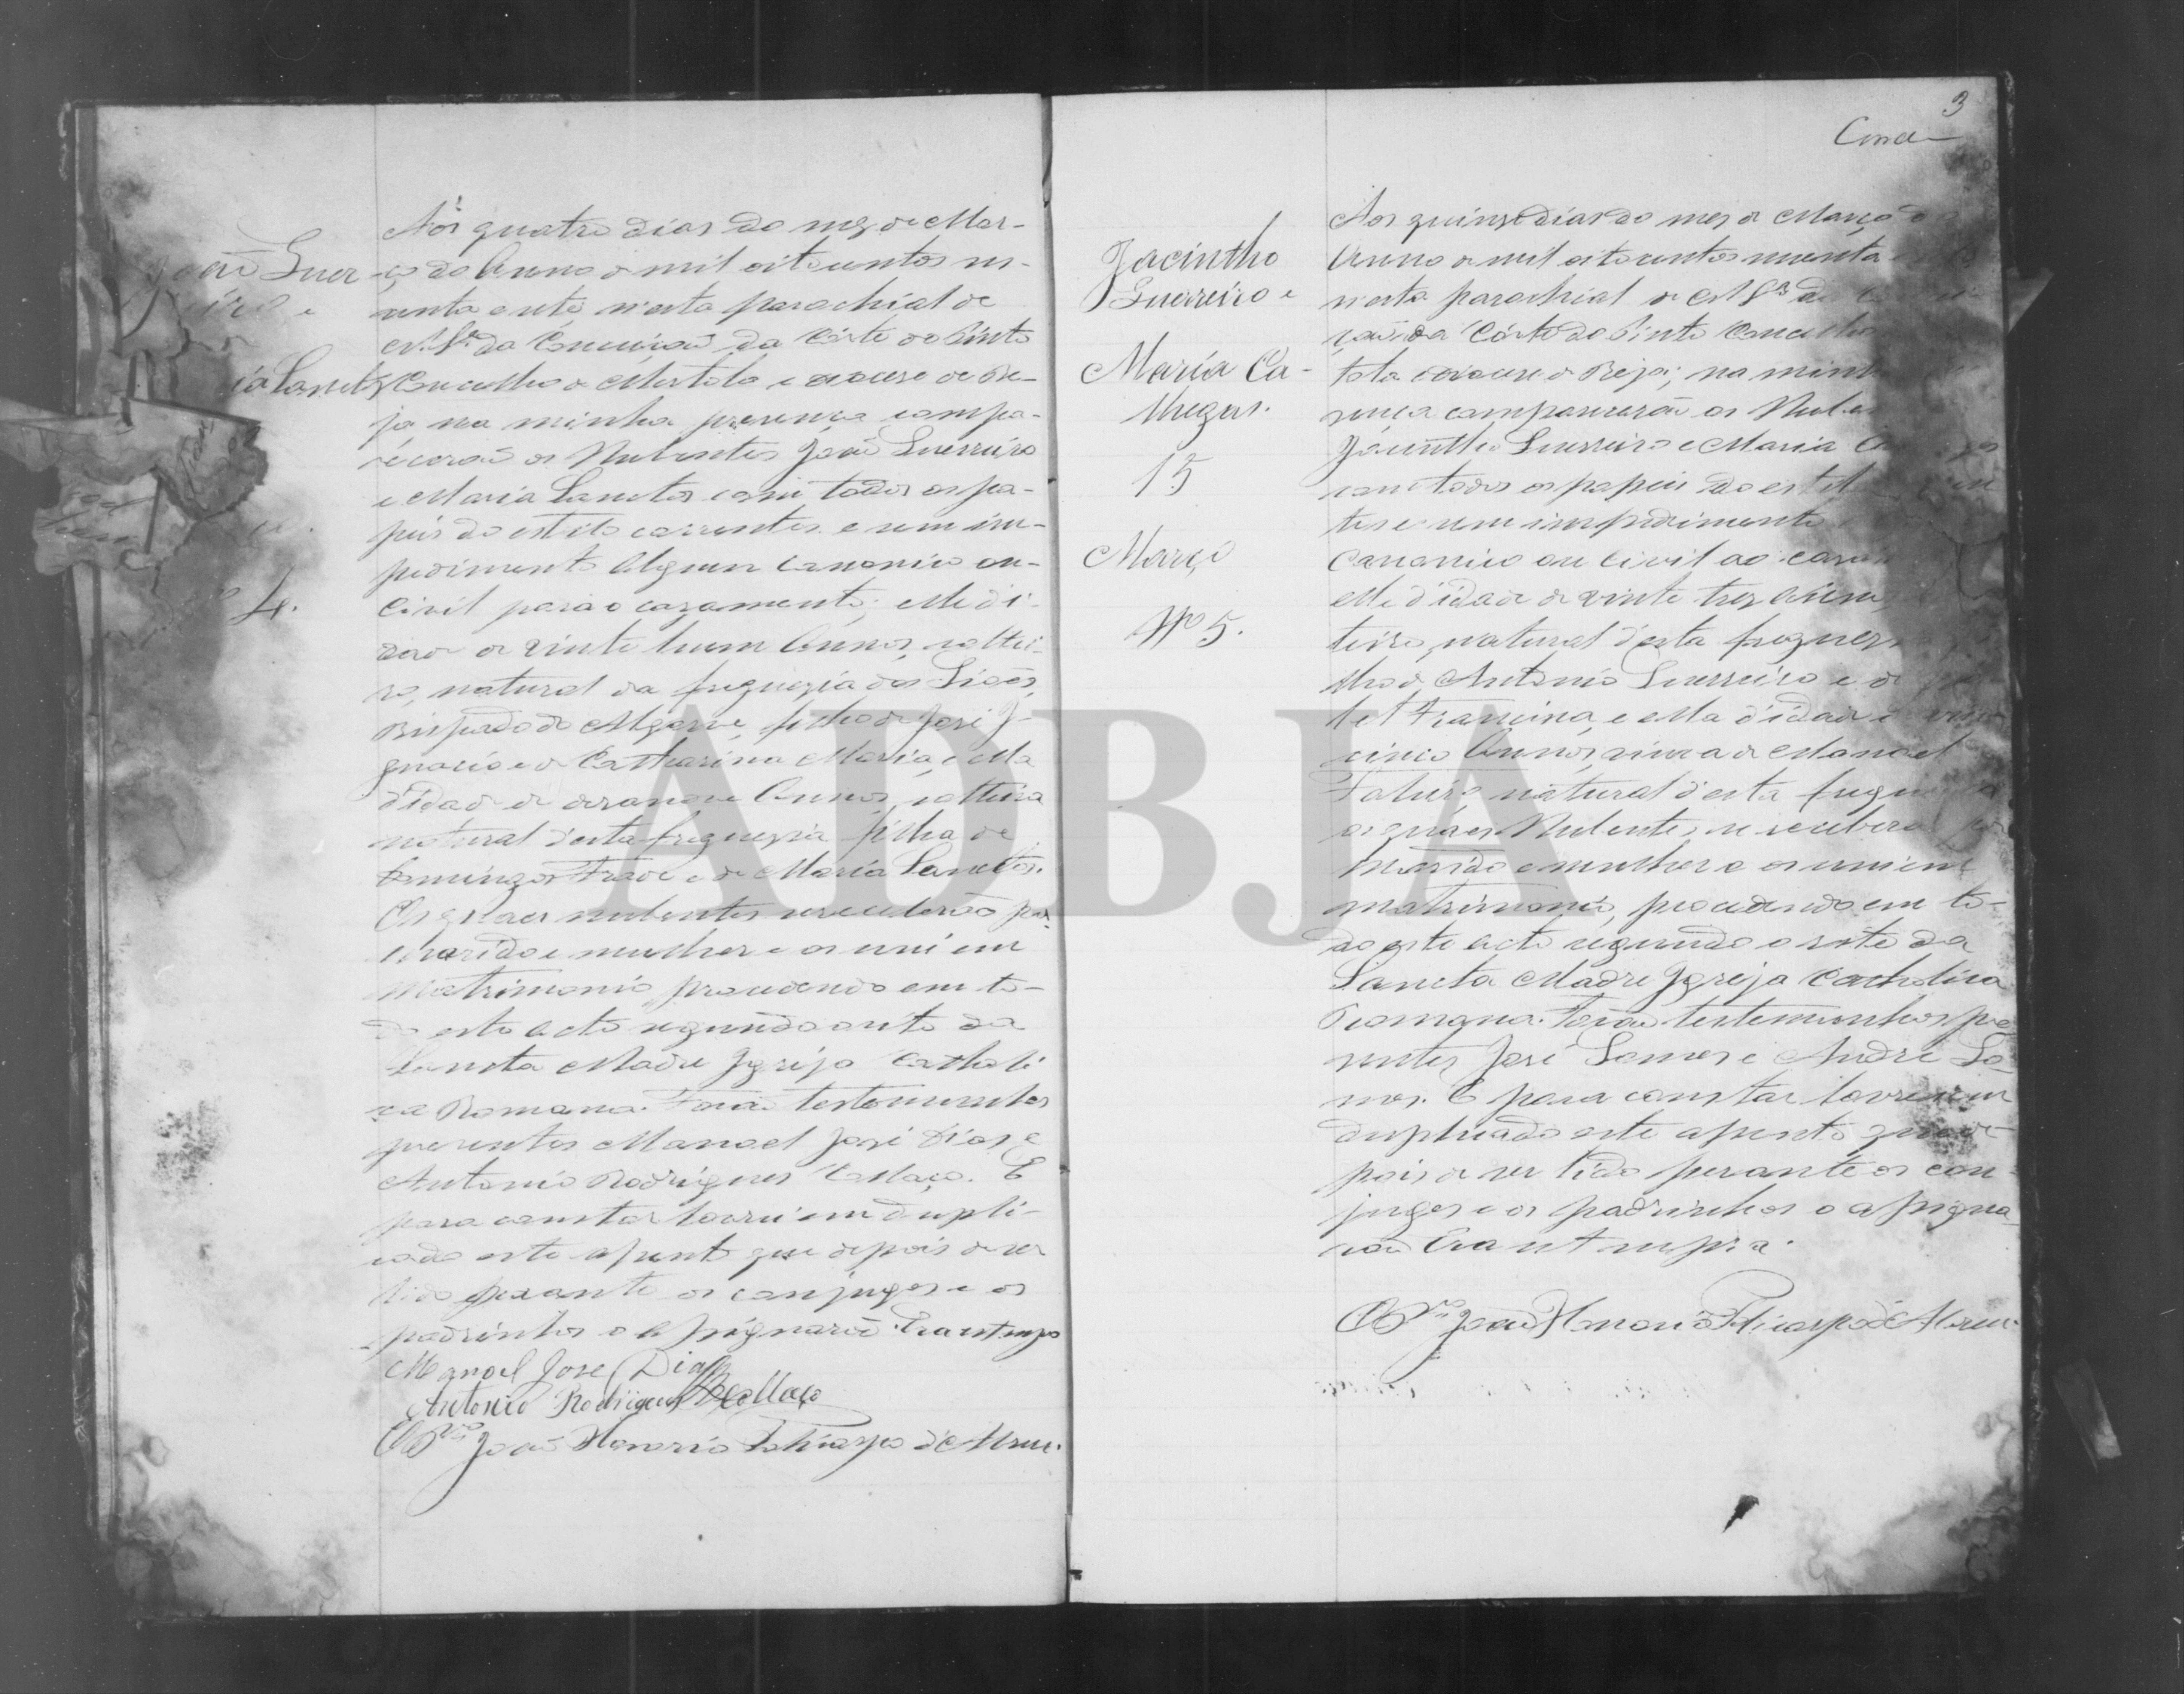 João Guer
iro e
ia Sanctos
4.
Aos quatro dias do mez de Mar-
ço do Anno de mil oitocentos no-
venta e oito n'esta parochial de
N. Sra da Conceição da Côrte do Pinto
Concelho de Mertola e diocese de Be-
ja na minha presença compa-
recerão os Nubentes João Guerreiro
e Maria Sanctos com todos os pa-
peis do estilo correntes e sem im-
pedimento algum canonico ou
civil para o cazamento; elle di-
dade de vinte hum Annos, soltei-
ro, natural da freguezia dos Giões,
Bispado do Algarve, filho de José J-
gnacio e de Catharina Maria, e ella
d'idade de dezanove Annos, solteira
natural d'esta freguezia filha de
Domingos Frade e de Maria Sanctos.
Os quaes nubentes se receberão por
marido e mulher e os uni em
Matrimonio, procedendo em to-
do este acto segundo o rito da
Sancta Madre Jgreja Catholi
ca Romana. Forão testemunhas
presentes Manoel José Dias e
Antonio Rodrigues Collaço. E
para constar lavrei em dupli-
cado este assento que depois de ser
lido perante os conjuges e os
padrinhos o assignarão. Era ut supra
Manoel Jose Dias
Antonio Rodrigues Collaço
O P.e João Honorio d'Abreu.
3
Jacintho
Guerreiro e
Maria Ca-
thegas.
15
Março
Nº 5.
Aos quinze dias do mes de Março do
Anno de mil oitocentos noventa
n'esta parochial de N. Sra da
ção da Côrte do Pinto Concelho
tola diocese de Beja; na minha
sença comparecerão os Nubentes
Jacintho Guerreiro e Maria
com todos os papeis do estilo
tes e sem impedimento
canonico ou civil ao casam
elle d'idade de vinte trez Annos
teiro, natural d'esta freguesia
lho de Antonio Guerreiro e de
Francisca, e ella d'idade de vinte
cinco Annos, viuva de Manoel
natural d'esta freguesia
os quaes Nubentes se receberão por
Marido e mulher e os uni em
matrimonio, procedendo em to-
do este acto segundo o rito da
Sancta Madre Jgreja Catholica
Romana. Forão testemunhas pre
sentes José Gomes e André Go-
mes. E para constar lavrei em
duplicado este assento que de
pois de ser lido perante os con-
juges e os padrinhos o assigna
rão Era ut supra.
O P.e João Honorio d'Abreu.
ADBJA